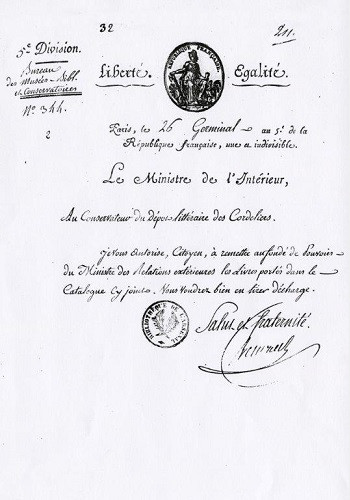 32
211.
5.e Division.
Bureau
des Musées - Bibl.
et Conservatoires
N.o 344.
2
RÉPUBLIQUE FRANÇAISE.
Liberté. Egalité.
Paris, le 26 Germinal au 5.e de la
République française, une et indivisible.
Le Ministre de l'Intérieur,
Au Conservateur du Dépôt littéraire des Cordeliers.
Je Vous Autorise, Citoyen, à remettre au fondé de Pouvoirs
du Ministre des Relations extérieures les Livres portés dans le
Catalogue Cy joint. Vous Voudrez bien en tirer décharge.
Salut et fraternité.
BIBLIOTHÈQUE DE L'ARSENAL